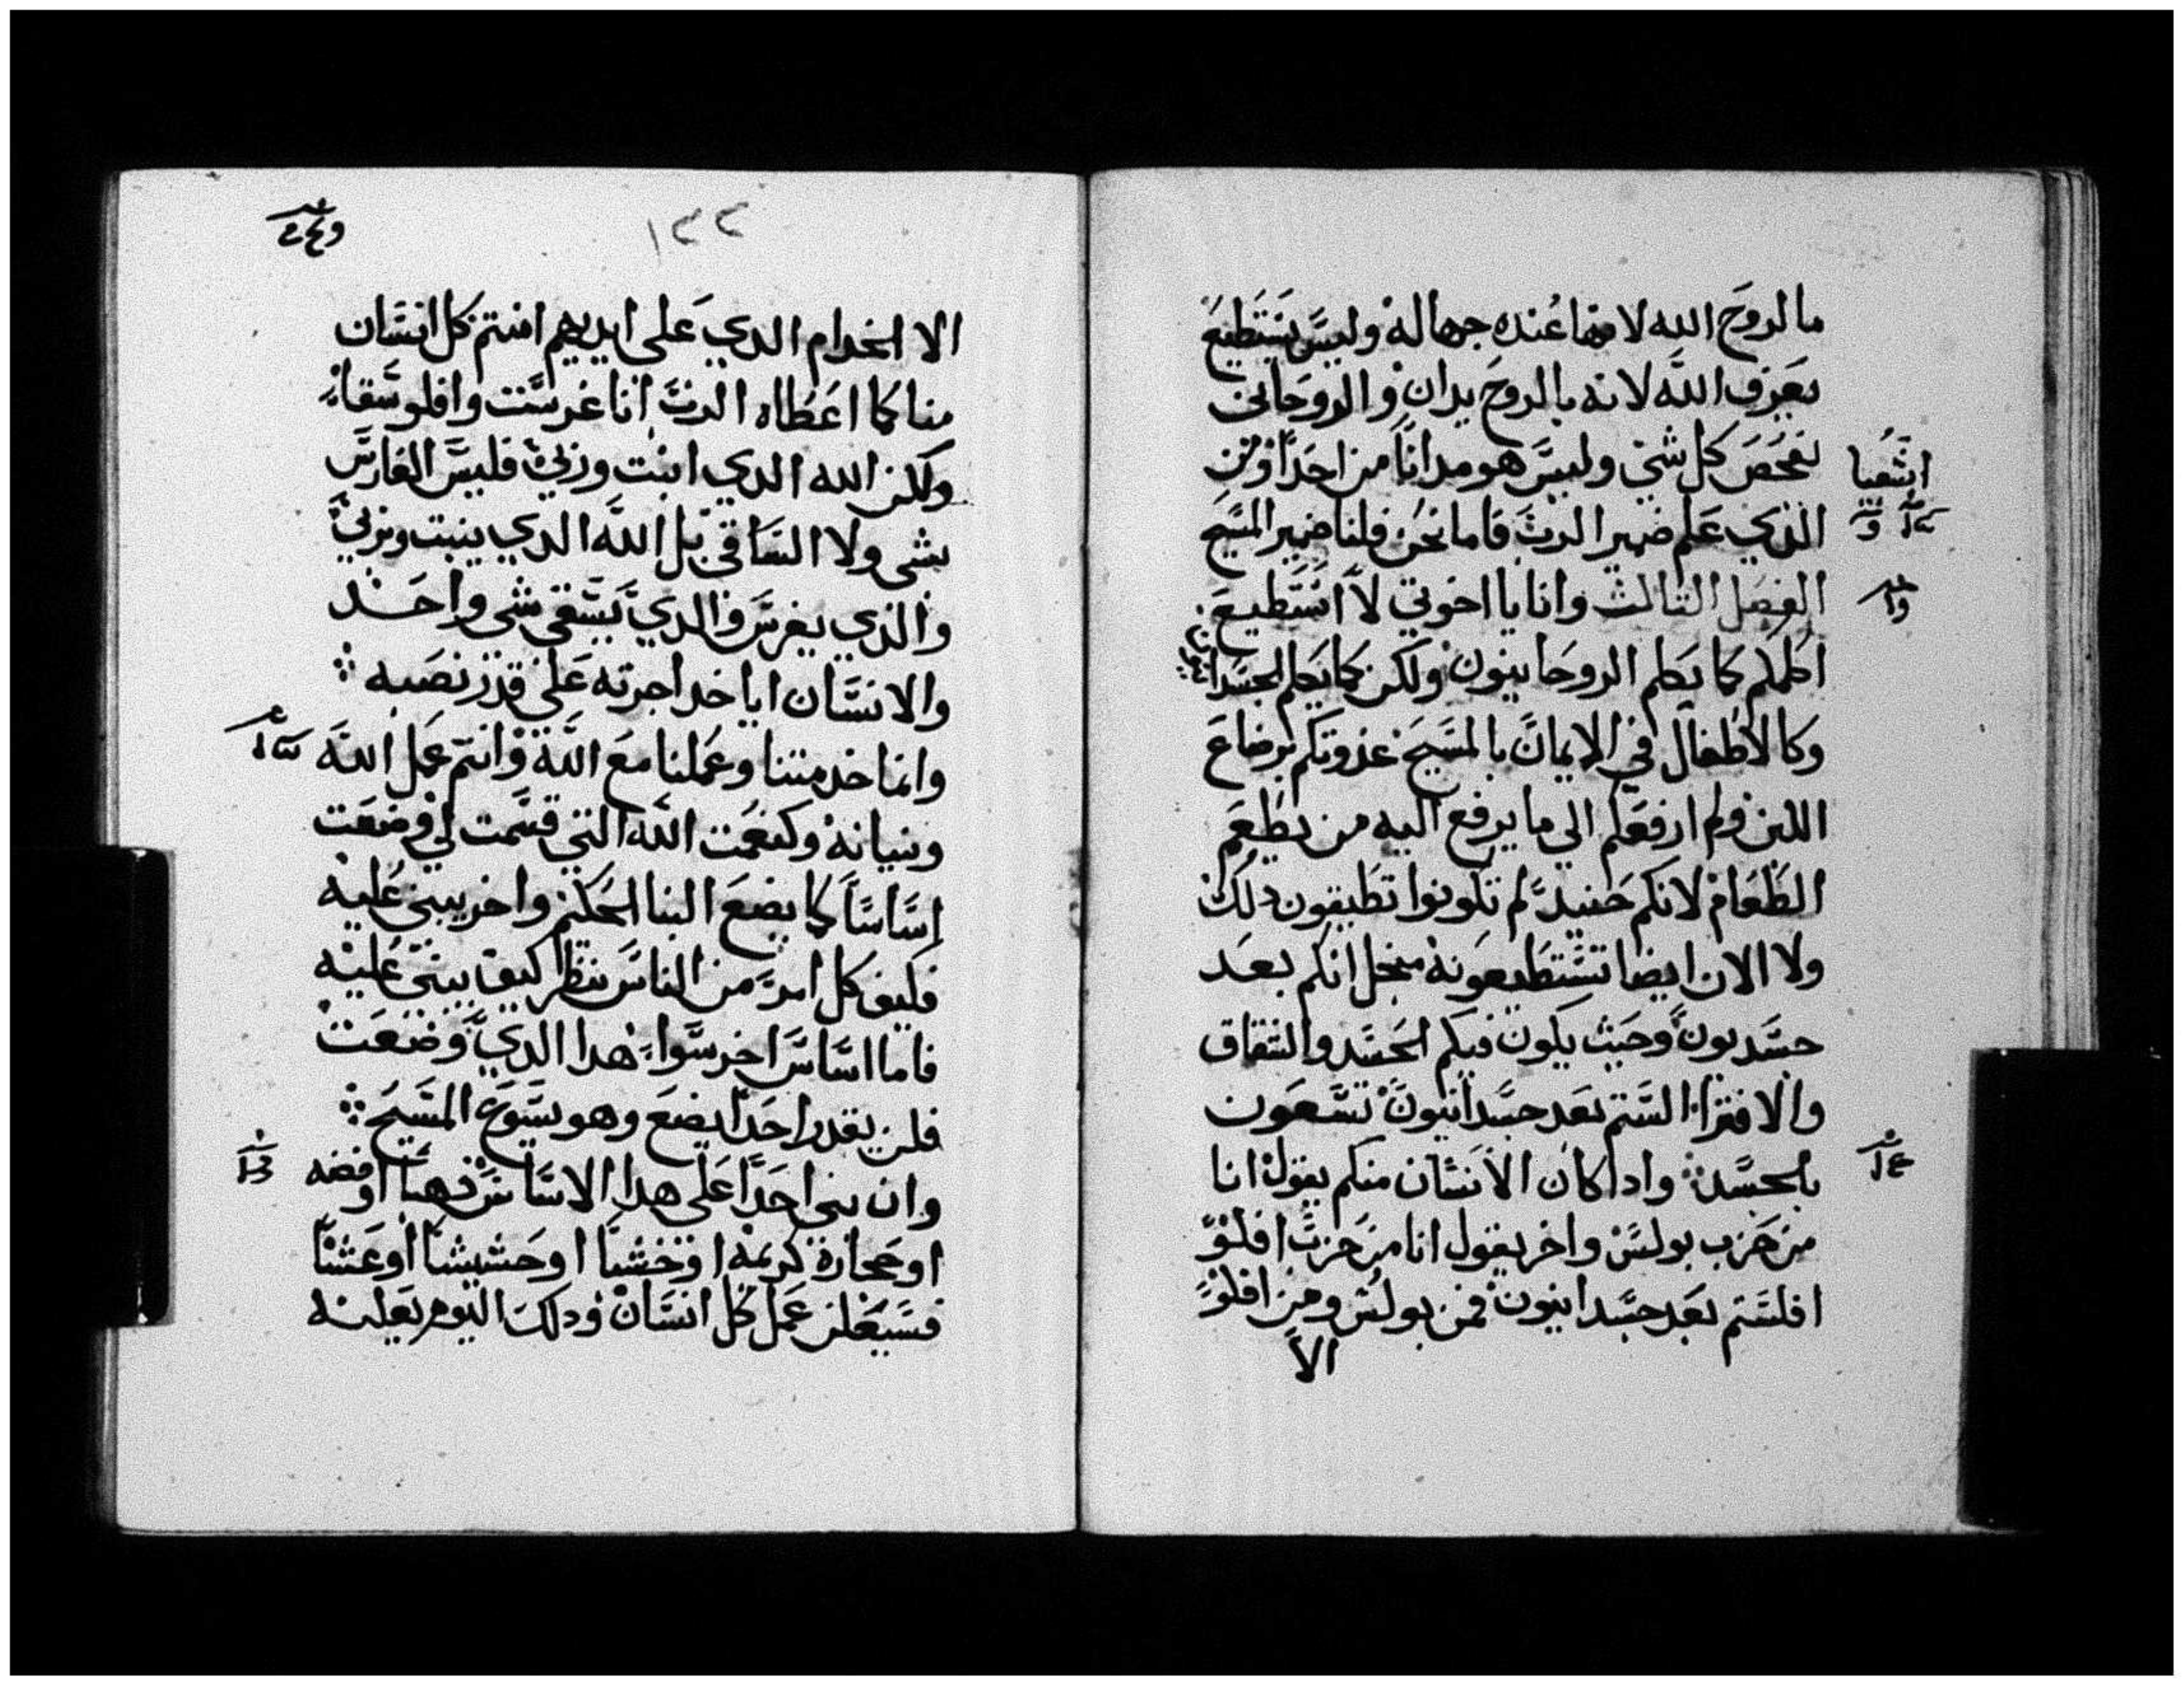 ما لروح الله لانها عنده جهاله وليس يستطيع
يعرف الله لانه بالروح يدان والروحاني
يفحص كل شي وليس هو مدانا من احدا ومن
اشعيا
الذي علم ضمير الرب فاما نحن فلنا ضمير المسيح
الفصل الثالث وانا يا اخوتي لا استطيع
اكلمكم كما يكلم الروحانيون ولكن كما يكلم الجسدا
وكالاطفال في الايمان بالمسيح غدوتكم برضاع
اللبن ولم ارفعكم الي ما يرفع اليه من يطعم
الطعام لانكم حنيد لم تكونوا تطيقون دلك
ولا الان ايضا تستطيعونه منجل انكم بعد
جسديون وحيث يكون فيكم الحسد والشقاق
والافترا الستم بعد جسدانيون تسعون
بالجسد وادا كان الانسان منكم يقول انا
من حزب بولس واخر يقول انا من حزب افلو
افلستم بعد جسدانيون فمن بولس ومن افلو
الا
١٢٢
الا الخدام الدي علي ايديهم امنتم كل انسان
منا كما اعطاه الرب انا غرست وافلو سقا
ولكن الله الدي انبت وربي فليس الغارس
بشي ولا الساقي بل الله الدي ينبت ويربي
والذي يغرس والدي يسقي شي واحد
والانسان ايا خد اجرته علي قدر نصبه
وانما خدمتنا وعملنا مع الله وانتم عمل الله
وبنيانه وكنعمت الله التي قسمت لي وضعت
اساسا كما يضع البنا الحكيم واخر يبني عليه
فليف كل امر من الناس ينظر كيف يبني عليه
فاما اساس اخر سوا هدا الدي وضعت
فلن يقدر احدا يضع وهو يسوع المسيح
وان بني احدا علي هدا الاساس دهبا او فضه
او حجارة كريمه او خشبا او حشيشا او عشبا
فسيعلن عمل كل انسان ودلك اليوم يعلنه